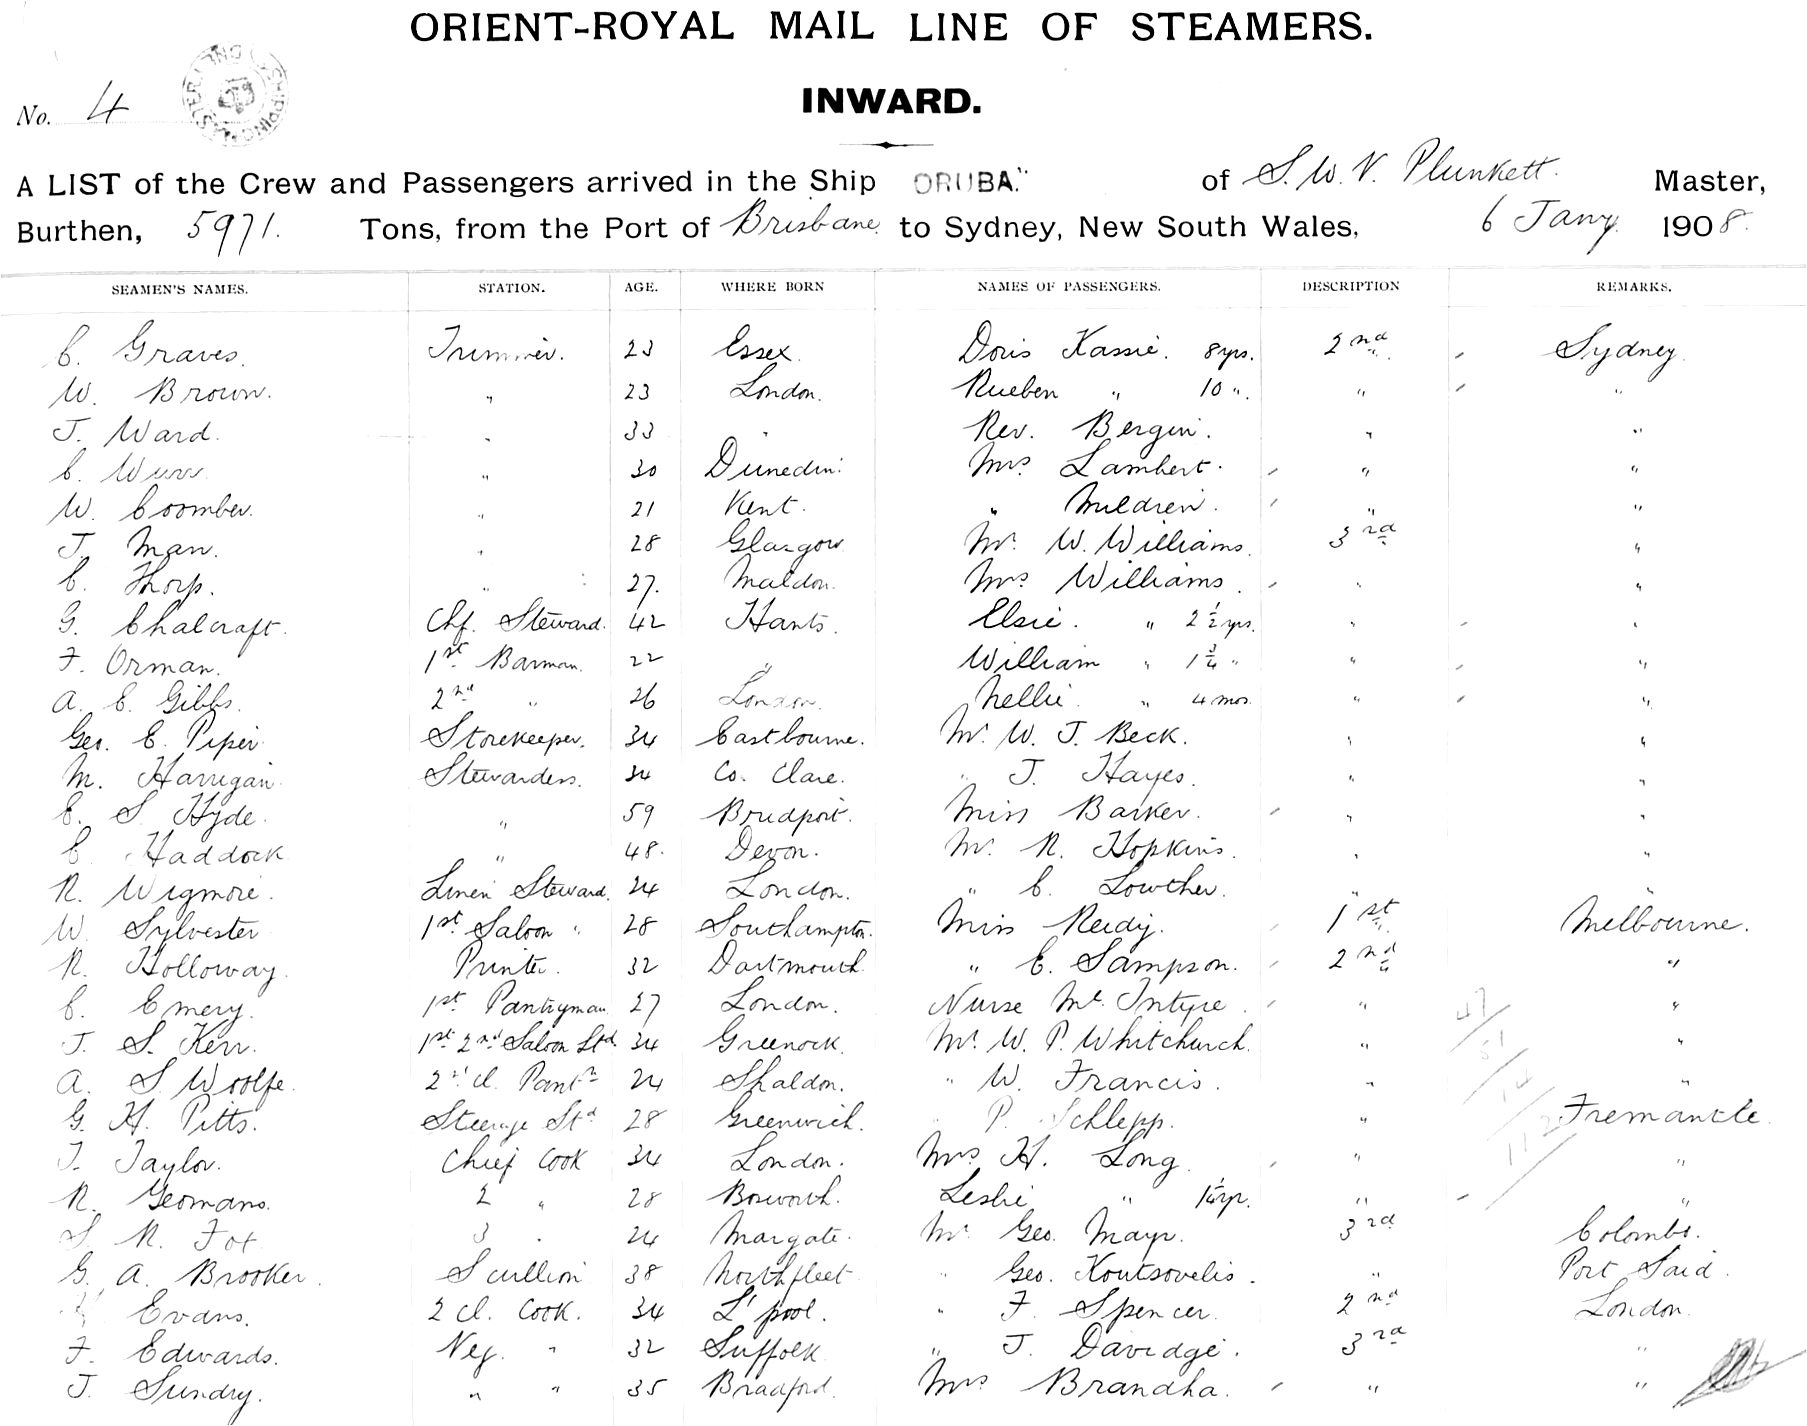 ORIENT-ROYAL MAIL LINE OF STEAMERS.
No. 4
INWARD.
A LIST of the Crew and Passengers arrived in the Ship ORUBA." of S. W. V. Plunkett. Master,
Burthen, 5971. Tons, from the Port of Brisbane to Sydney, New South Wales, 6 Jany. 1908.
SEAMEN'S NAMES. STATION. AGE. WHERE BORN NAMES OF PASSENGERS. DESCRIPTION REMARKS.
C. Graves. Trimmer. 23 Essex. Doris Kassie. 8 yrs. 2nd Sydney.
W. Brown. " 23 London. Rueben " 10 ". " "
J. Ward. " 33 " Rev. Bergin. " "
C. " 30 Dunedin. Mrs. Lambert. " "
W. Coomber. " 21 Kent. " Mildren. " "
J. Man. " 28 Glasgow Mr. W. Williams. 3rd "
C. Thorp. " 27. Maldon. Mrs Williams. " "
G. Chalcraft. Chf. Steward. 42 Hants. Elsie. " 2½ yrs. " "
F. Orman. 1st Barman. 22 " William " 1¾ " " "
A. E. Gibbs. 2nd " 26 London. Nellie. " 4 mos. " "
Geo. E. Piper Storekeeper. 34 Eastbourne. Mr. W. J. Beck. " "
M. Harrigan. Stewardess. 34 Co. Clare. " J. Hayes. " "
E. S. Hyde. " 59 Bridport. Miss Barker. " "
C. Haddock " 48. Devon. Mr. R. Hopkins. " "
R. Wigmore. Linen Steward. 24 London. " C. Lowther. " "
W. Sylvester 1st Saloon " 28 Southampton. Miss Reidy. 1st Melbourne.
R. Holloway. Printer. 32 Dartmouth. " E. Sampson. 2nd "
C. Emery. 1st Pantryman 27 London. Nurse McIntyre. " "
J. S. Kerr. 1st 2nd Saloon Std. 34 Greenock. Mr. W. P. Whitchurch. " "
A. S. Woolfe. 2nd cl. Pantn 24 Shaldon. " W. Francis. " "
G. H. Pitts. Steerage Std 28 Greenwich. " P. Schlepp. " Fremantle.
T. Taylor. Chief Cook 34 London. Mrs H. Long. " "
R. Yeomans. 2 " 28 Bosworth. Leslie " yr. " "
S. R. Fox 3 " 24 Margate. Mr Geo. Mayr. 3rd Colombo.
G. A. Brooker. Scullion 38 Northfleet " Geo. Koutsovelis. " Port Said.
Evans. 2 cl. Cook. 34 L'pool. " F. Spencer. 2nd London.
F. Edwards. Veg. " 32 Suffolk " J. Davidge. 3rd "
J. Sundry. " " 35 Bradford. Mrs Brandha. " "